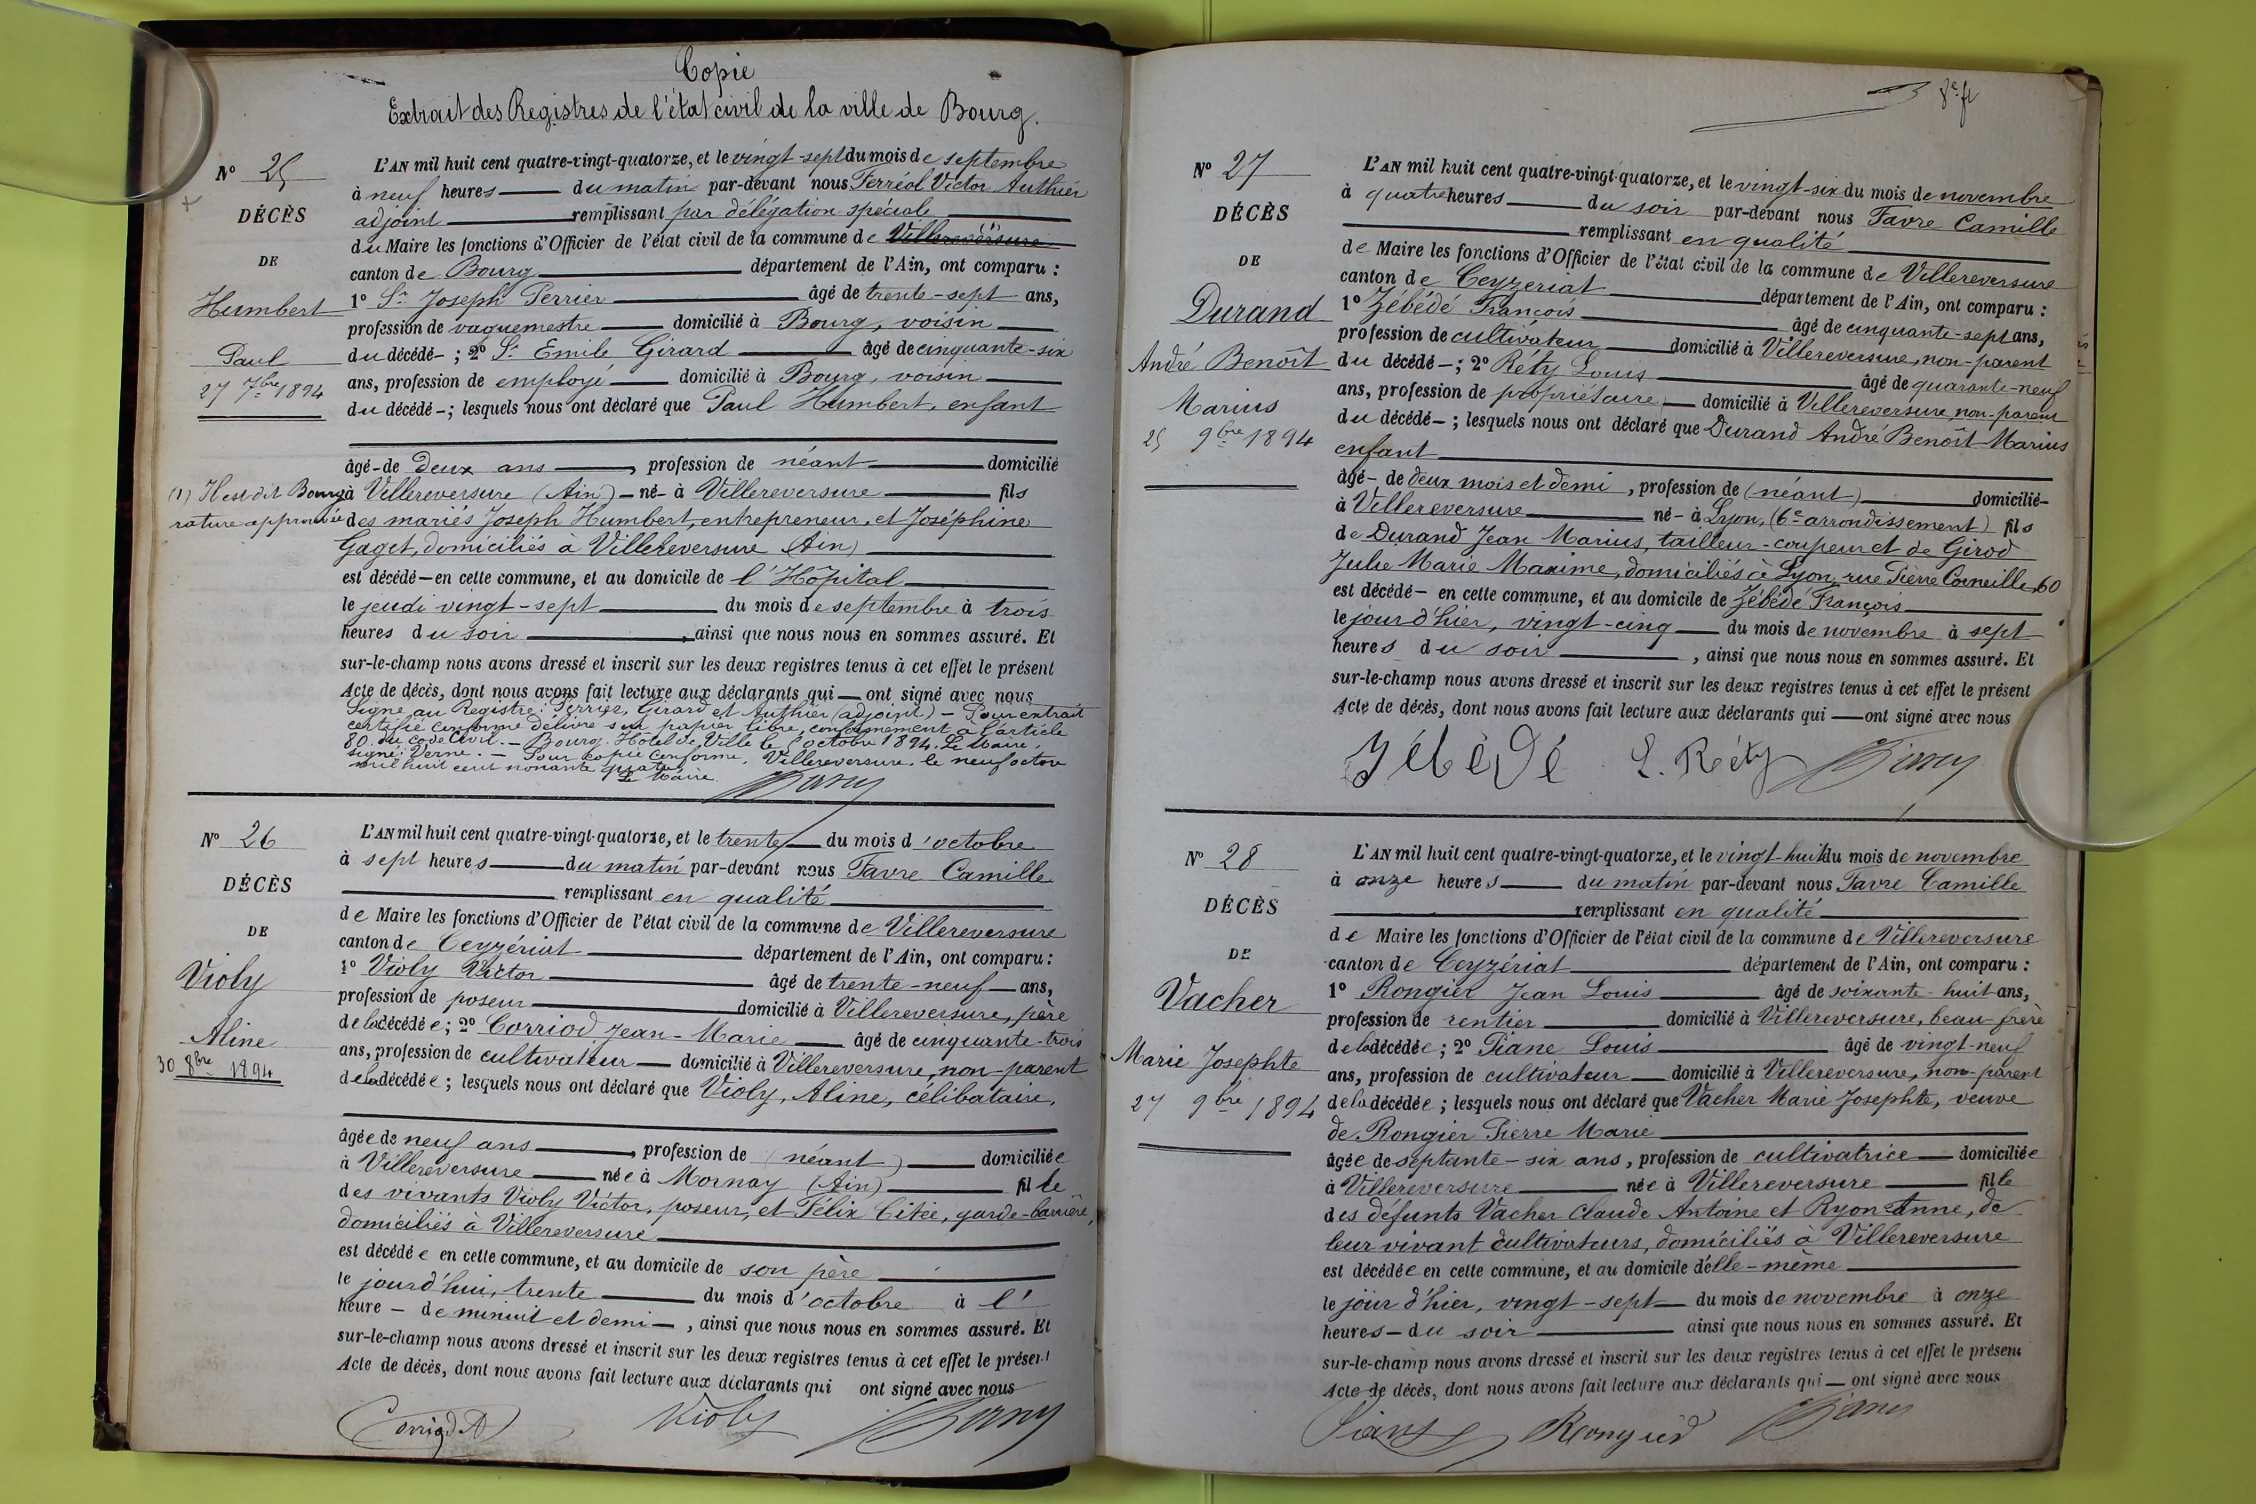 Copie
Extrait des Registres de l'état civil de la ville de Bourg.
N° 25
DÉCÈS
DE
Humbert
Paul
27 7bre 1894
(1) Il est dit Bourg
rature approuvée
L'AN mil huit cent quatre-vingt-quatorze, et le vingt-sept du mois de septembre
à neuf heures du matin par-devant nous Ferréol Victor Authier
adjoint remplissant par délégation spéciale
du Maire les fonctions d'Officier de l'état civil de la commune de Villereversure
canton de Bourg département de l'Ain, ont comparu :
1° Sr Joseph Perrier âgé de trente-sept ans,
profession de vaguemestre domicilié à Bourg, voisin
du décédé- ; 2° Sr Emile Girard âgé de cinquante-six
ans, profession de employé domicilié à Bourg, voisin
du décédé- ; lesquels nous ont déclaré que Paul Humbert, enfant
âgé-de deux ans, profession de néant domicilié
à Villereversure (Ain) - né- à Villereversure fils
des mariés Joseph Humbert, entrepreneur, et Joséphine
Gaget, domiciliés à Villereversure (Ain)
est décédé-en cette commune, et au domicile de l'Hôpital
le jeudi vingt-sept du mois de septembre à trois
heures du soir, ainsi que nous nous en sommes assuré. Et
sur-le-champ nous avons dressé et inscrit sur les deux registres tenus à cet effet le présent
Acte de décès, dont nous avons fait lecture aux déclarants qui — ont signé avec nous
Signé au Registre : Perrier, Girard et Authier (adjoint) - Pour extrait
certifié conforme délivré sur papier libre, conformément à l'article
80 du code Civil. - Bourg, Hôtel de Ville le octobre 1894. Le Maire,
signé : Verne. - Pour copie conforme, Villereversure, le neuf octobre
mil huit cent nonante quatre
Le Maire
N° 26
DÉCÈS
DE
Violy
Aline
30 8bre 1894
L'AN mil huit cent quatre-vingt-quatorze, et le trente du mois d'octobre
à sept heures du matin par-devant nous Favre Camille
remplissant en qualité
de Maire les fonctions d'Officier de l'état civil de la commune de Villereversure
canton de Ceyzériat département de l'Ain, ont comparu :
1° Violy Victor âgé de trente-neuf ans,
profession de poseur domicilié à Villereversure, père
de la décédée ; 2° Corriod Jean-Marie âgé de cinquante-trois
ans, profession de cultivateur domicilié à Villereversure, non-parent
de la décédée ; lesquels nous ont déclaré que Violy, Aline, célibataire,
âgée de neuf ans, profession de (néant) domiciliée
à Villereversure née à Mornay (Ain) fille
des vivants Violy Victor, poseur, et Félix Citée, garde-barrière,
domiciliés à Villereversure
est décédée en cette commune, et au domicile de son père
le jourd'hui, trente du mois d'octobre à l'
heure - de minuit et demi -, ainsi que nous nous en sommes assuré. Et
sur-le-champ nous avons dressé et inscrit sur les deux registres tenus à cet effet le présent
Acte de décès, dont nous avons fait lecture aux déclarants qui ont signé avec nous
Violy
8e ft
N° 27
DÉCÈS
DE
Durand
André Benoît
Marius
25 9bre 1894
L'AN mil huit cent quatre-vingt-quatorze, et le vingt-six du mois de novembre
à quatre heures du soir par-devant nous Favre Camille
remplissant en qualité
de Maire les fonctions d'Officier de l'état civil de la commune de Villereversure
canton de Ceyzeriat département de l'Ain, ont comparu :
1° Zébédé François âgé de cinquante-sept ans,
profession de cultivateur domicilié à Villereversure, non-parent
du décédé- ; 2° Réty Louis âgé de quarante-neuf
ans, profession de propriétaire domicilié à Villereversure, non-parent
du décédé- ; lesquels nous ont déclaré que Durand André Benoît Marius
enfant
âgé- de deux mois et demi, profession de (néant) domicilié-
à Villereversure né- à Lyon, (6e arrondissement) fils
de Durand Jean Marius, tailleur-coupeur et de Girod
Julie Marie Maxime, domiciliés à Lyon, rue Pierre Corneille, 60
est décédé- en cette commune, et au domicile de Zébédé François
le jour d'hier, vingt-cinq du mois de novembre à sept
heures du soir, ainsi que nous nous en sommes assuré. Et
sur-le-champ nous avons dressé et inscrit sur les deux registres tenus à cet effet le présent
Acte de décès, dont nous avons fait lecture aux déclarants qui — ont signé avec nous
Zébédé L. Réty
N° 28
DÉCÈS
DE
Vacher
Marie Josephte
27 9bre 1894
L'AN mil huit cent quatre-vingt-quatorze, et le vingt-huit du mois de novembre
à onze heures du matin par-devant nous Favre Camille
remplissant en qualité
de Maire les fonctions d'Officier de l'état civil de la commune de Villereversure
canton de Ceyzériat département de l'Ain, ont comparu :
1° Rongier Jean Louis âgé de soixante-huit ans,
profession de rentier domicilié à Villereversure, beau-frère
de la décédée ; 2° Piane Louis âgé de vingt-neuf
ans, profession de cultivateur domicilié à Villereversure, non-parent
de la décédée ; lesquels nous ont déclaré que Vacher Marie Josephte, veuve
de Rongier Pierre Marie
âgée de septante-six ans, profession de cultivatrice domiciliée
à Villereversure née à Villereversure fille
des défunts Vacher Claude Antoine et Ryon Anne, de
leur vivant cultivateurs, domiciliés à Villereversure
est décédée en cette commune, et au domicile d'elle-même
le jour d'hier, vingt-sept du mois de novembre à onze
heures - du soir ainsi que nous nous en sommes assuré. Et
sur-le-champ nous avons dressé et inscrit sur les deux registres tenus à cet effet le présent
Acte de décès, dont nous avons fait lecture aux déclarants qui — ont signé avec nous